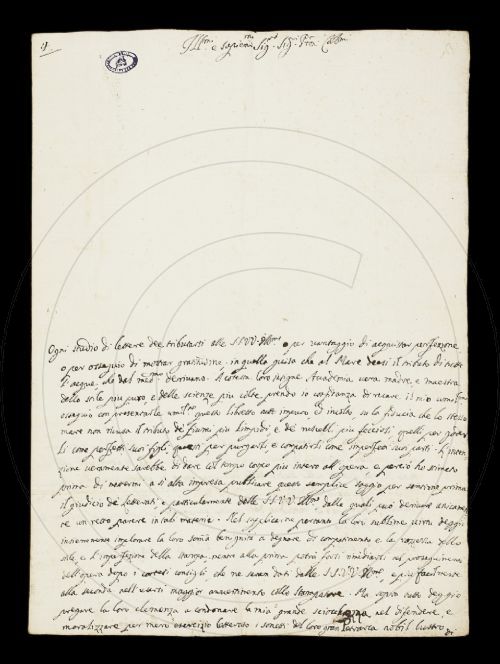 Ill.mi e sapien.mi Sig.ri Sig.ri P.ni Col.mi
Ogni studio di lettere dee tributarsi alle SS.VV. Ill.me o per vantaggio di acquistar perfezione
o per ossequio di mostrar gratitudine in quella guisa che al Mare deesi il tributo di tutte
l'acque, che dal med.mo derivano. A cotesta loro insigne Accademia vera madre, e maestra
dello stile più puro, e delle scienze più colte prendo io confidanza di recare il mio umilissimo
ossequio con presentarle questo libretto tutto impuro ed incolto su la fiducia che lo stesso
mare non rifiuta il tributo de' fiumi più limpidi e de' ruscelli più fecciosi, quelli per
come perfetti suoi figli, questi per purgarli, e compatirli come imperfetti suoi parti. L'inten-
zione veramente sarebbe di dare col tempo corpo più intero all'opera, e perciò ho stimato
prima di mettermi a sì alta impresa pubblicare questo semplice saggio per sentirne prima
il giudicio de' Letterati, e particolarmente delle SS.VV. Ill.me, dalle quali può derivare unicamen-
te un retto parere in tali materie. Nel supplicarne pertanto la loro sublime virtù deggio
insiememente implorare la loro somma benignità a degnare di compatimento e la rozzezza dello
stile, e l'imperfezione della stampa, mentre alla prima potrà farsi rimediarsi nel proseguimento
dell'opera dopo i cortesi consigli, che ne saran dati dalle SS.VV. Ill.me, e più facilmente
alla seconda nell'averti maggio avvertimento collo Stampatore. Ma sopra tutto deggio
pregare la loro clemenza a condonare la mia grande nel difendere, e
moralizzare per mero esercizio letterato i sonetti del loro gran Petrarca nobil lustro
di